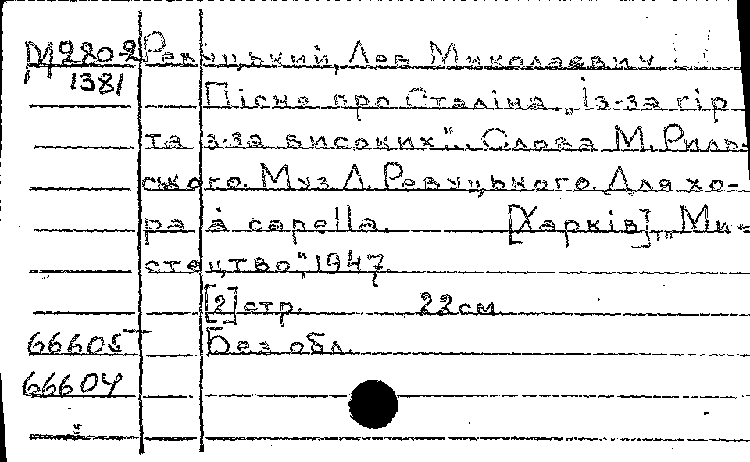 М2802 Ревуцький, Лев Миколаєвич
1381
Пісня про Сталіна. „Із-за гір
та з-за високих"... Слова М. Риль-
ського. Муз Л. Ревуцького. Для хо-
ра à capella. [Харків], „Ми-
стецтво", 1947.
[2] стр. 22см
66605 Без обл.
66604